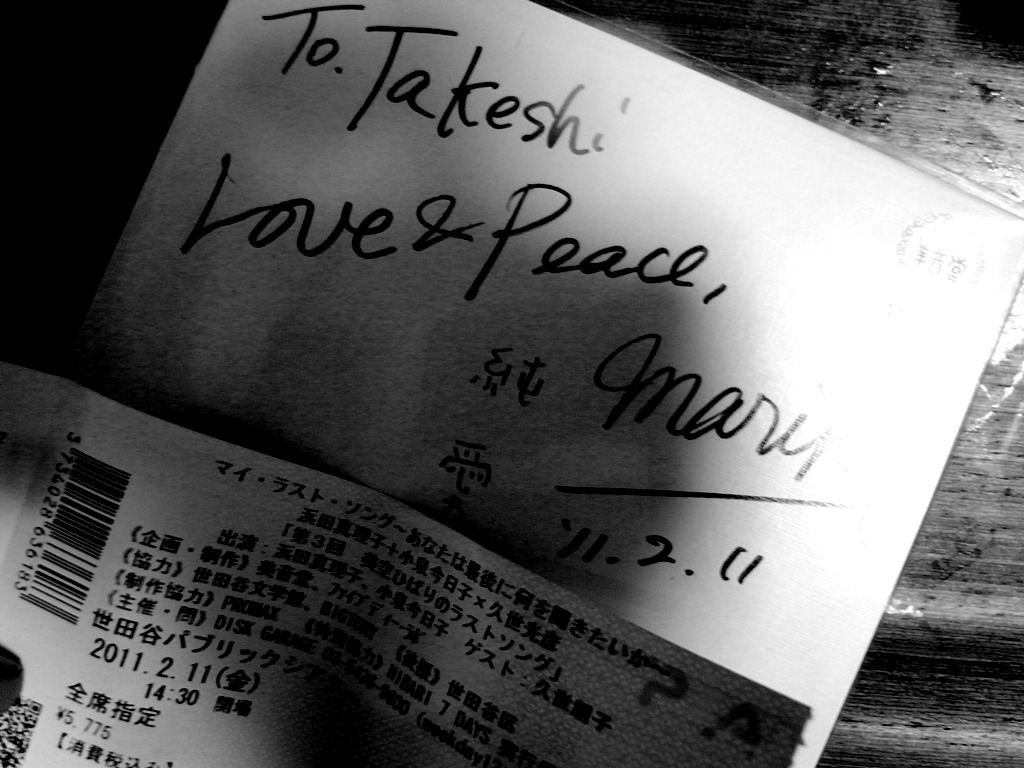 To. Takeshi
Love & Peace,
純 Mari
愛
'11. 2. 11
マイ・ラスト・ソング〜あなたは最後に何を聞きたいか〜
浜田真理子+小泉今日子×久世光彦
「第3回 美空ひばりのラストソング」
出演：浜田真理子、小泉今日子 ゲスト：久世朋子
《企画・制作》美音堂、ファイブディーズ 《後援》世田谷区
《協力》世田谷文学館、BIGTORY
《制作協力》PROMAX 《特別協力》HIBARI 7 DAYS
《主催・問》DISK GARAGE
世田谷パブリックシア
2011. 2. 11(金)
14:30 開場
全席指定
¥5,775
【消費税込み】